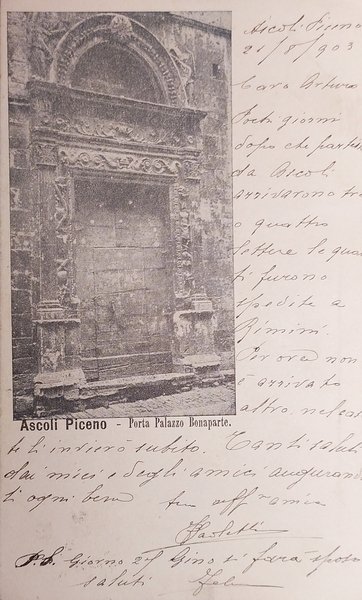 Ascoli Piceno
21/8/903
Caro Arturo
giorni
dopo che
da Ascoli
arrivarono tre
o quattro
lettere le qua
ti furono
spedite a
Rimini.
Per ora non
è arrivato
altro, nel ca
Ascoli Piceno - Porta Palazzo Bonaparte.
te li invierò subito. Tanti saluti
dai miei e degli amici augurand
ti ogni bene
tuo aff
P.S. Giorno Gino si farà sposo
saluti